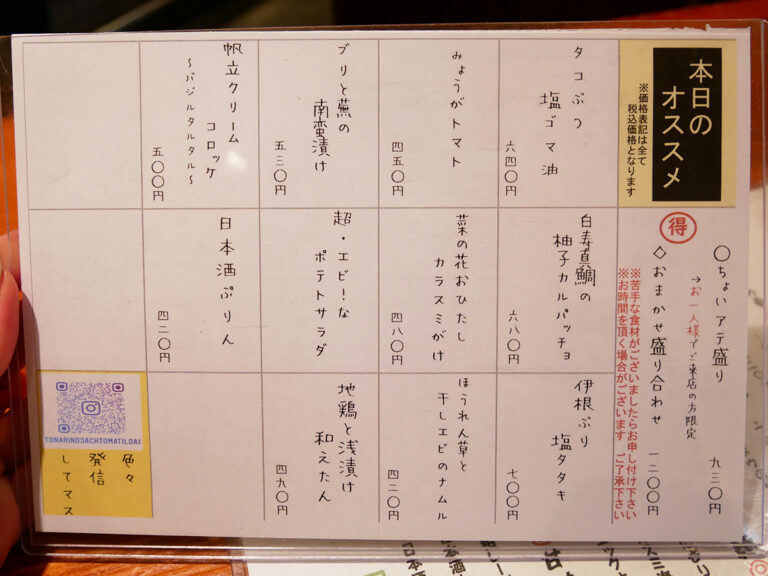 本日の
オススメ
※価格表記は全て
税込価格となります
○ちょいアテ盛り
→お一人様でご来店の方限定
九三〇円
得
◇おまかせ盛り合わせ
一二〇〇円
※苦手な食材がございましたらお申し付け下さい
※お時間を頂く場合がございます ご了承下さい
タコぶつ
塩ゴマ油
六四〇円
白寿真鯛の
柚子カルパッチョ
六八〇円
伊根ぶり
塩タタキ
七〇〇円
みょうがトマト
四五〇円
菜の花おひたし
カラスミがけ
四八〇円
ほうれん草と
干しエビのナムル
四二〇円
ブリと蕪の
南蛮漬け
五三〇円
超・エビ!な
ポテトサラダ
地鶏と浅漬け
和えたん
四九〇円
帆立クリーム
コロッケ
〜バジルタルタル〜
五〇〇円
日本酒ぷりん
四二〇円
TONARINOJACKTOMATILDA1
色々
発信
してマス